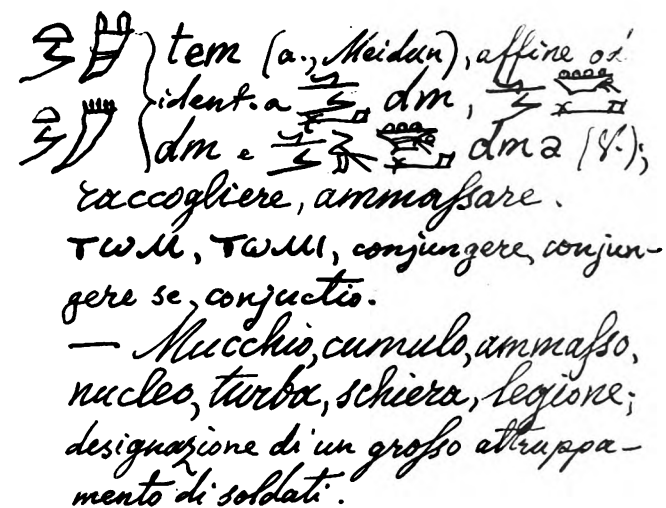 tem (a., Meidun), affine od
ident. a dm,
dm e dma (V.);
raccogliere, ammaſsare.
ⲧⲱⲙ, ⲧⲱⲙⲓ, conjungere, conjun-
gere se, conjuctio.
— Mucchio, cumulo, ammaſso,
nucleo, turba, schiera, legione;
designazione di un groſso attruppa-
mento di soldati.